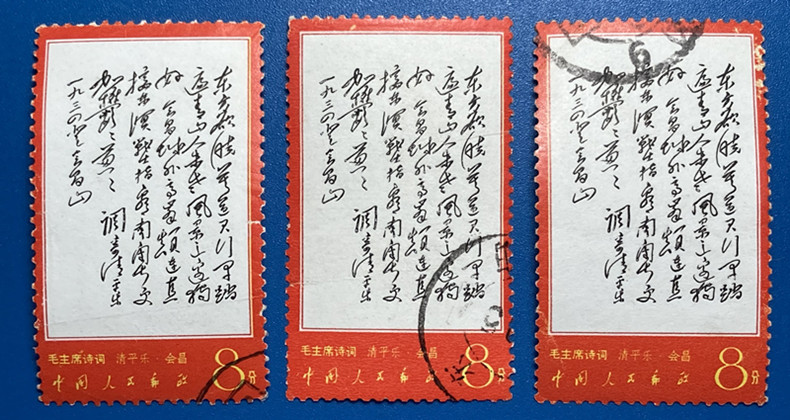 东方欲晓莫道君行早踏
遍青山人未老风景这边独
好 会昌城外高峰颠连直
接东溟战士指看南粤更
加鬱〻葱〻 调寄清平乐
一九三四登会昌山
毛主席诗词 清平乐·会昌
中国人民邮政 8分
东方欲晓莫道君行早踏
遍青山人未老风景这边独
好 会昌城外高峰颠连直
接东溟战士指看南粤更
加鬱〻葱〻 调寄清平乐
一九三四登会昌山
毛主席诗词 清平乐·会昌
中国人民邮政 8分
东方欲晓莫道君行早踏
遍青山人未老风景这边独
好 会昌城外高峰颠连直
接东溟战士指看南粤更
加鬱〻葱〻 调寄清平乐
一九三四登会昌山
毛主席诗词 清平乐·会昌
中国人民邮政 8分
6